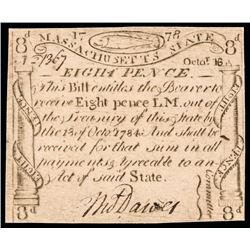 17 78
8d MASSACHUSETTS STATE 8d
Octor. 16
EIGHT PENCE.
This Bill entitles the Bearer to
receive Eight pence L.M. out of
the Treasury of this State by
the 18th of Octor. 1784. And shall be
received for that sum in all
payments, agreeable to an
Act of said State.
Committee
8d 8d
EIGHT
PENCE